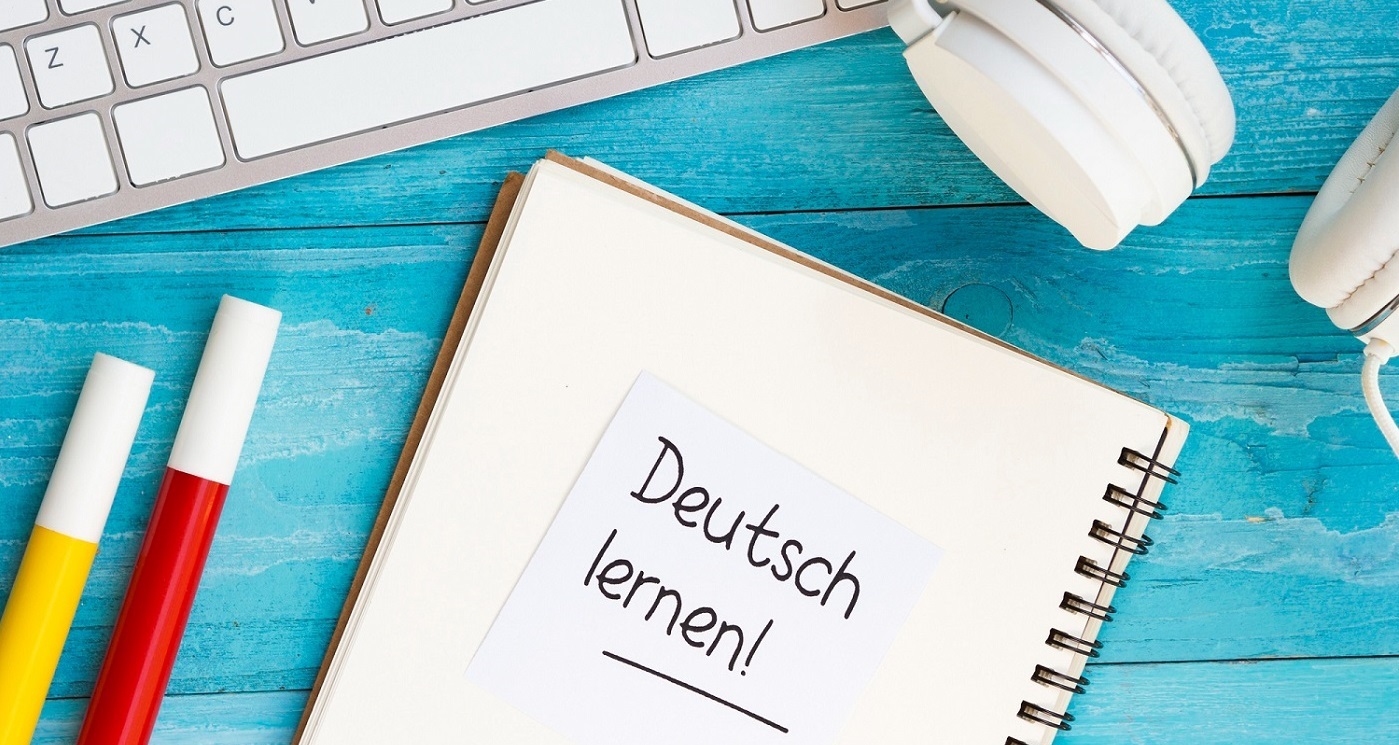 Z X C V
Deutsch
lernen!